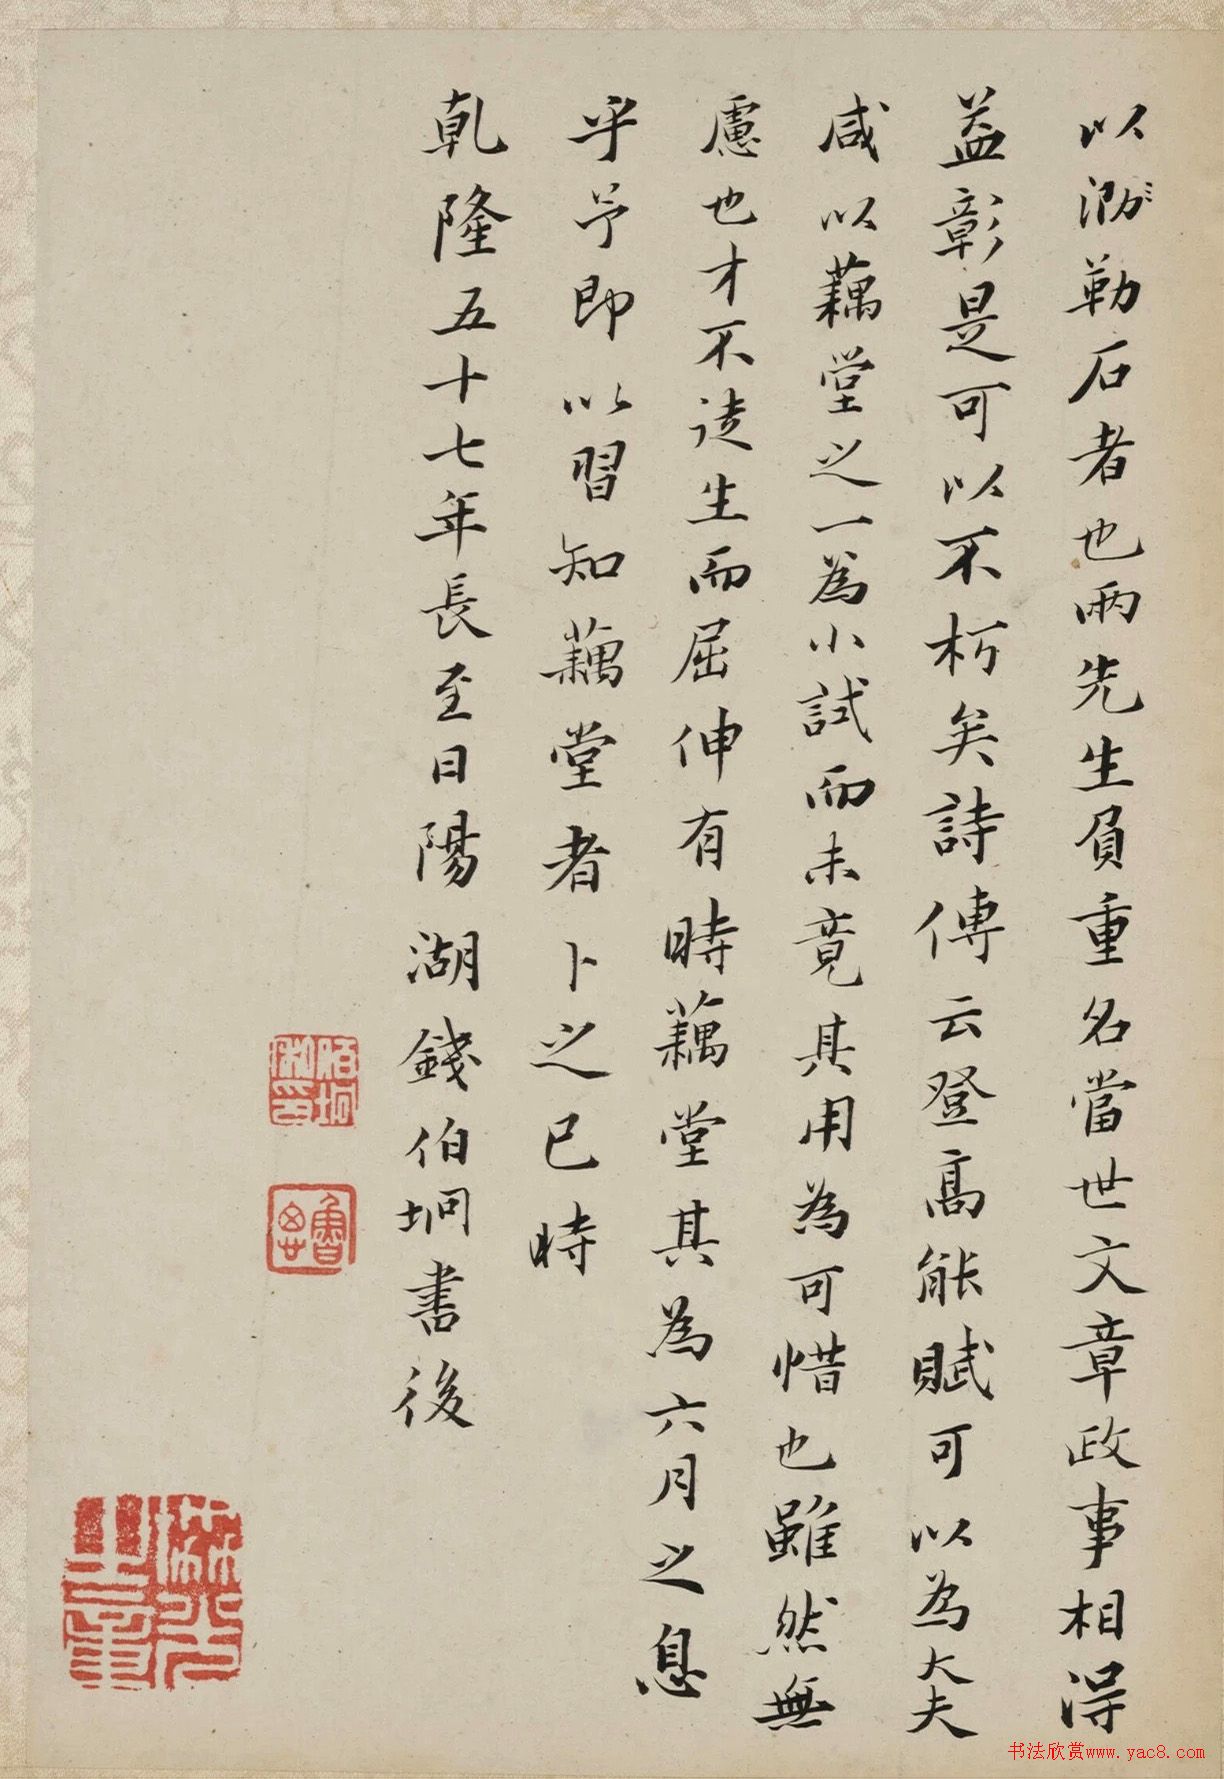 以泐勒石者也兩先生負重名當世文章政事相得
益彰是可以不朽矣詩傳云登高能賦可以為大夫
咸以藕堂之一為小試而未竟其用為可惜也雖然無
慮也才不徒生而屈伸有時藕堂其為六月之息
乎予即以習知藕堂者卜之已時
乾隆五十七年長至日陽湖錢伯坰書後
书法欣赏www.yac8.com